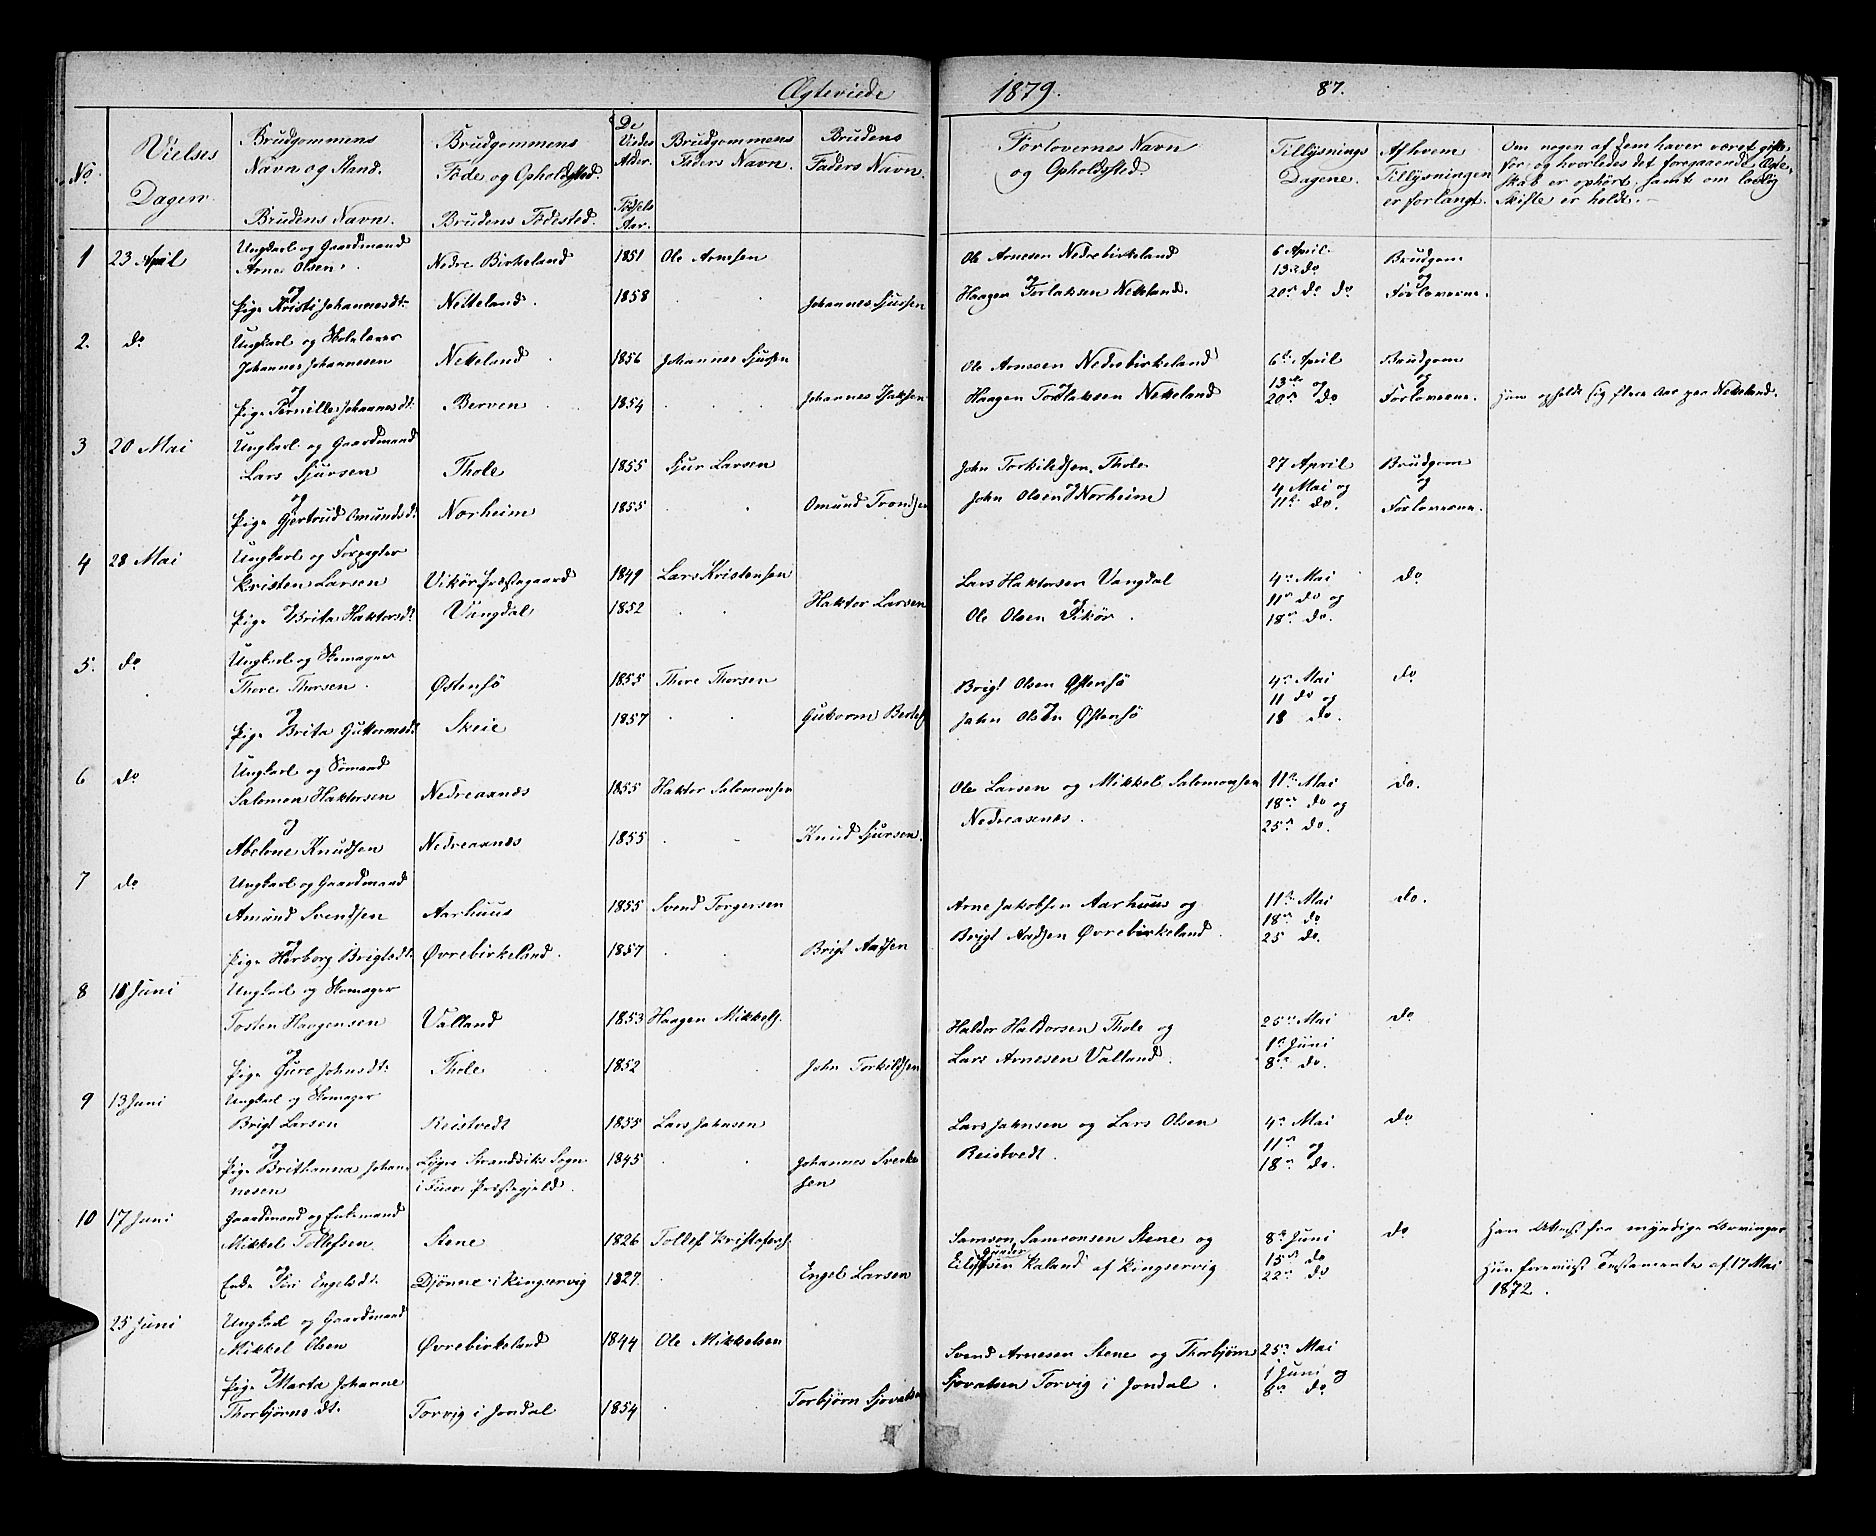 Ægteviede 1879. 87.
No.
Vielses Dagen.
Brudgommens Navn og Stand. Brudens Navn.
Brudgommens Føde og Opholdsted. Brudens Fødested.
De Viedes Alder. Fødsels Aar.
Brudgommens Faders Navn.
Brudens Faders Navn.
Forlovernes Navn og Opholdsted.
Tillysnings Dagene.
Af hvem Tillysningen er forlangt.
Om nogen af dem haver været gift
før, og hvorledes det foregaaende Ægte-
skab er ophørt, samt om lovlig
Skifte er holdt.
1 23 April Ungkarl og Gaardmand
Arne Olsen Nedre Birkeland 1851 Ole Arnesen Ole Arnesen Nedrebirkeland 6 April Brudgom
og og 13de do og
Pige Kristi Johannesdt. Netteland. 1858 Johannes Sjursen Haagen Torlaksen Neteland. 20de do do Forloverne.
2. do Ungkarl og Skolelærer
Johannes Johannesen Neteland 1856 Johannes Sjursen Ole Arnesen Nedrebirkeland 6te April Brudgom
og og 13de og og
Pige Pernille Johannesdt. Berven 1854 Johannes Isaksen Haagen Torlaksen Neteland 20de do Forloverne. Hun opholdt sig flere Aar paa Neteland.
3 20 Mai Ungkarl og Gaardmand
Lars Sjursen Thole 1855 Sjur Larsen John Torkildsen Thole 27 April Brudgom
og og 4 Mai og og
Pige Gjertrud Omundsdt. Norheim 1855 Omund Trondsen John Olsen Norheim 11te do. Forloverne.
4 28 Mai Ungkarl og Forpagter
Kristen Larsen Vikør Præstegaard 1849 Lars Kristensen Lars Haktorsen Vangdal 4de Mai do
og og 11te do og
Pige Brita Haktorsdt. Vangdal 1852 Haktor Larsen Ole Olsen Vikør. 18de do.
5. do Ungkarl og Skomager
Thore Thorsen. Østensø 1855 Thore Thorsen Brigt Olsen Østensø 4de Mai do
og og 11 do og
Pige Brita Guttormsdt. Skeie 1857 Guttorm Bertels. John Olsen Østensø 18 do.
6 do Ungkarl og Sømand
Salomon Haktorsen Nedreaanæs 1855 Haktor Salomonsen Ole Larsen og Mikkel Salomonsen 11te Mai do.
og 18de do og
Abelone Knudsen Nedreaanæs 1855 Knud Sjursen. Nedreaanæs. 25de do.
7 do Ungkarl og Gaardmand
Amund Svendsen Aarhuus 1855 Svend Torgersen Arne Jakobsen Aarhuus og 11te Mai do.
og 18de do
Pige Herborg Brigtsdt. Øvrebirkeland. 1857 Brigt Aadsen Brigt Aadsen Øvrebirkeland. 25 do.
8 11 Juni Ungkarl og Skomager
Tosten Haagensen Valland 1853 Haagen Mikkels. Haldor Haldorsen Thole og 25de Mai do
og 1te Juni
Pige Guro Johnsdt. Thole 1852 John Torkildsen Lars Arnesen Valland. 8de do.
9 13 Juni Ungkarl og Skomager
Brigt Larsen Reistvedt 1855 Lars Johnsen Lars Johnsen og Lars Olsen 4de Mai do
og 11te og
Pige Britanna Johan- Ligre Strandviks Sogn 1845 Johannes Sverke- Reistvedt. 18de do.
nesen i Fuse Præstegjeld. sen
10 17 Juni Gaardmand og Enkemand
Mikkel Tollefsen Stene 1826 Tollef Kristofers. Samson Samsonsen Stene og 8de Juni do Han Attest fra myndige Arvinger
og 15de do
Enke Siri Engelsdt. Djønne i Kingservig 1827 Engel Larsen Kaland af Kingservig 22de do Hun foreviist Testamente af 17 Mai
1872.
25 Juni Ungkarl og Gaardmand
Mikkel Olsen Øvrebirkeland 1844 Ole Mikkelsen Svend Arnesen Stene og Thorbjørn 25de Mai
og 1 Juni og
Pige Marta Johanne Torbjørn Sjovatsen Sjovatsen Torvig i Jondal. 8de do
Thorbjørnsdt. Torvig i Jondal 1854